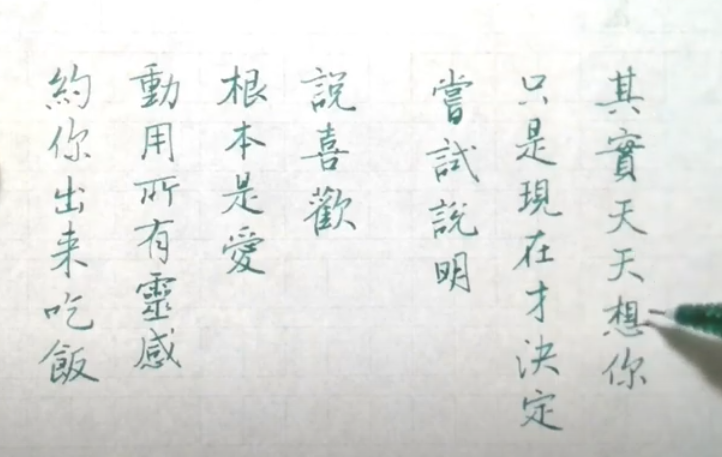 其實天天想你
只是現在才決定
嘗試說明
說喜歡
根本是愛
動用所有靈感
約你出来吃飯